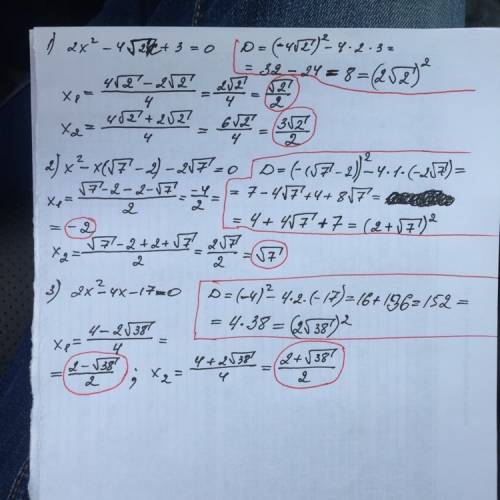 1) 2x² - 4√2x + 3 = 0
D = (-4√2)² - 4·2·3 =
= 32 - 24 = 8 = (2√2)²
x₁ = (4√2 - 2√2)/4 = 2√2/4 = √2/2
x₂ = (4√2 + 2√2)/4 = 6√2/4 = 3√2/2
2) x² - x(√7 - 2) - 2√7 = 0
D = (-(√7 - 2))² - 4·1·(-2√7) =
= 7 - 4√7 + 4 + 8√7 =
= 4 + 4√7 + 7 = (2 + √7)²
x₁ = (√7 - 2 - 2 - √7)/2 = -4/2 =
= -2
x₂ = (√7 - 2 + 2 + √7)/2 = 2√7/2 = √7
3) 2x² - 4x - 17 = 0
D = (-4)² - 4·2·(-17) = 16 + 136 = 152 =
= 4·38 = (2√38)²
x₁ = (4 - 2√38)/4 =
= (2 - √38)/2 ; x₂ = (4 + 2√38)/4 = (2 + √38)/2